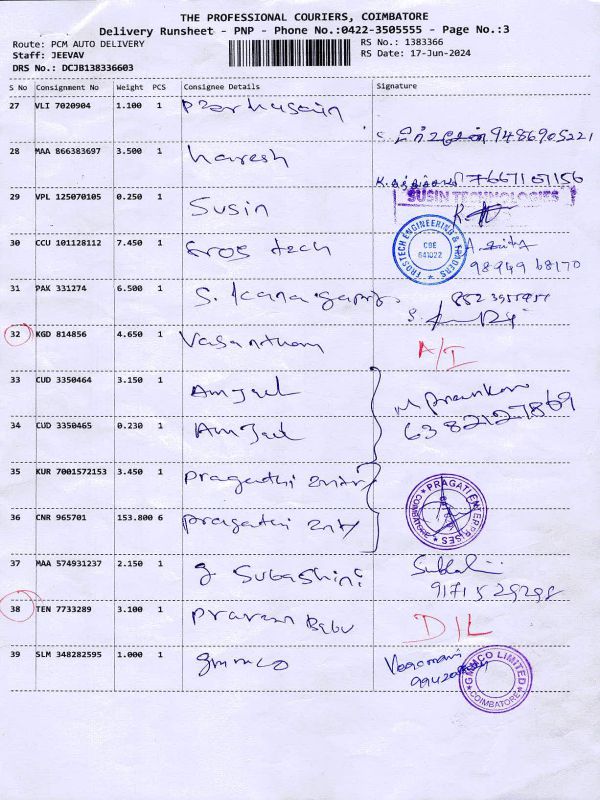 THE PROFESSIONAL COURIERS, COIMBATORE
Delivery Runsheet - PNP - Phone No.:0422-3505555 - Page No.:3
Route: PCM AUTO DELIVERY
RS No.: 1383366
Staff: JEEVAV
RS Date: 17-Jun-2024
DRS No.: DCJB138336603
S No Consignment No Weight PCS Consignee Details Signature
27 VLI 7020904 1.100 1
9486905221
28 MAA 866383697 3.500 1 haresh
7667107156
29 VPL 125070105 0.250 1 Susin
SUSIN TECHNOLOGIES
30 CCU 101128112 7.450 1 Eros tech
FROSTECH ENGINEERING & TRADERS
CBE 641022
98949 68170
31 PAK 331274 6.500 1
32 KGD 814856 4.650 1 Vasantham A/I
33 CUD 3350464 3.150 1 Amjad
34 CUD 3350465 0.230 1 Amjad
6382127869
35 KUR 7001572153 3.450 1 pragathi
36 CNR 965701 153.800 6 pragathi
PRAGATI ENTERPRISES COIMBATORE
37 MAA 574931237 2.150 1 g Subashini
38 TEN 7733289 3.100 1 praveen Babu DIL
39 SLM 348282595 1.000 1 gmmco
GMMCO LIMITED COIMBATORE